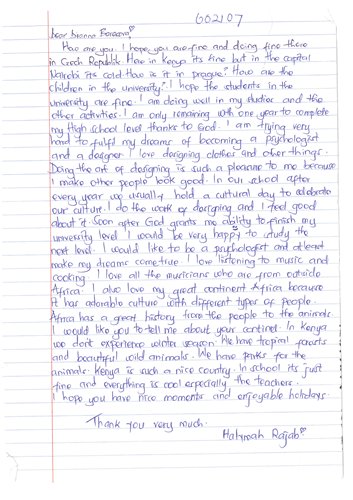 602107
Dear
How are you. I hope you are fine and doing fine there
in Czech Republic. Here in Kenya its fine but in the capital
Nairobi its cold. How is it in prague? How are the
children in the university? I hope the students in the
university are fine. I am doing well in my studies and the
other activities. I am only remaining with one year to complete
my high school level thanks to God. I am trying very
hard to fulfil my dreams of becoming a psychologist
and a designer. I love designing clothes and other things.
Doing the art of designing is such a pleasure to me because
I make other people look good. In our school after
every year we usually hold a cultural day to celebrate
our culture. I do the work of designing and I feel good
about it. Soon after God grants me ability to finish my
university level I would be very happy to study the
next level. I would like to be a psychologist and atleast
make my dreams come true. I love listening to music and
cooking. I love all the musicians who are from outside
Africa. I also love my great continent Africa because
it has adorable culture with different types of people.
Africa has a great history from the people to the animals.
I would like you to tell me about your continet. In Kenya
we don't experience winter season. We have tropical forests
and beautiful wild animals. We have parks for the
animals. Kenya is such a nice country. In school its just
fine and everything is cool especially the teachers.
I hope you have nice moments and enjoyable holidays.
Thank you very much.
Halymah Rajab